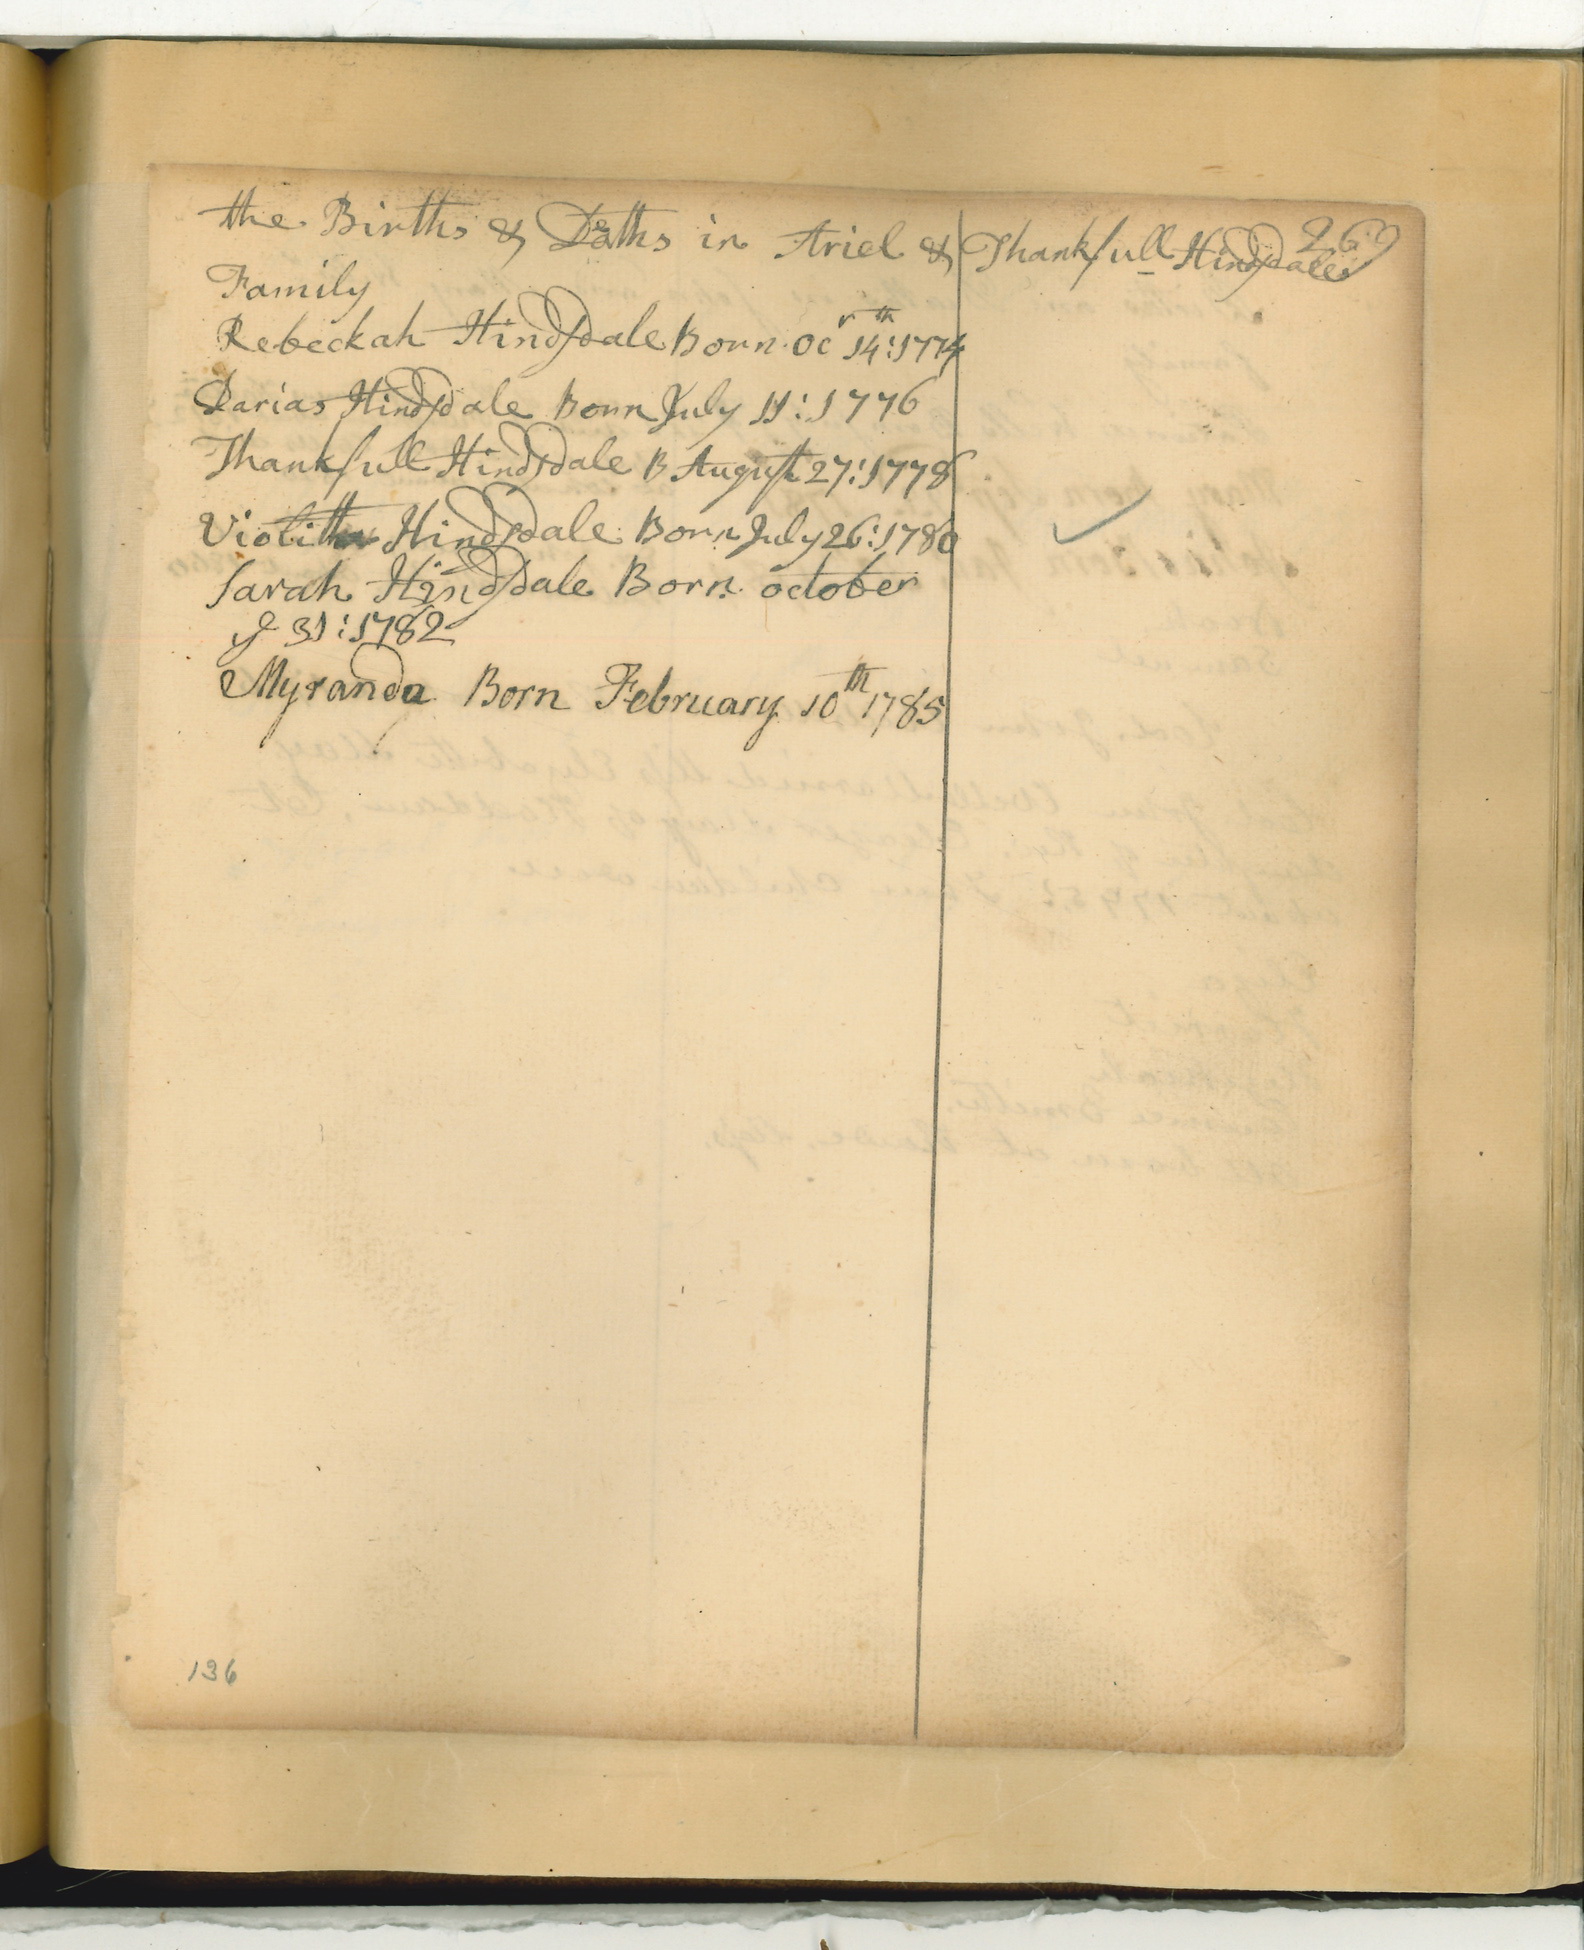 the Births & Deaths in Ariel & Thankfull Hindsdale 269
Family
Rebeckah Hindsdale Born Ocr 14th:1774
Darias Hindsdale Born July 11:1776
Thankfull Hindsdale B August 27:1778
Hindsdale Born July 26:1780
Sarah Hindsdale Born october
ye 31:1782
Myranda Born February 10th 1785
136